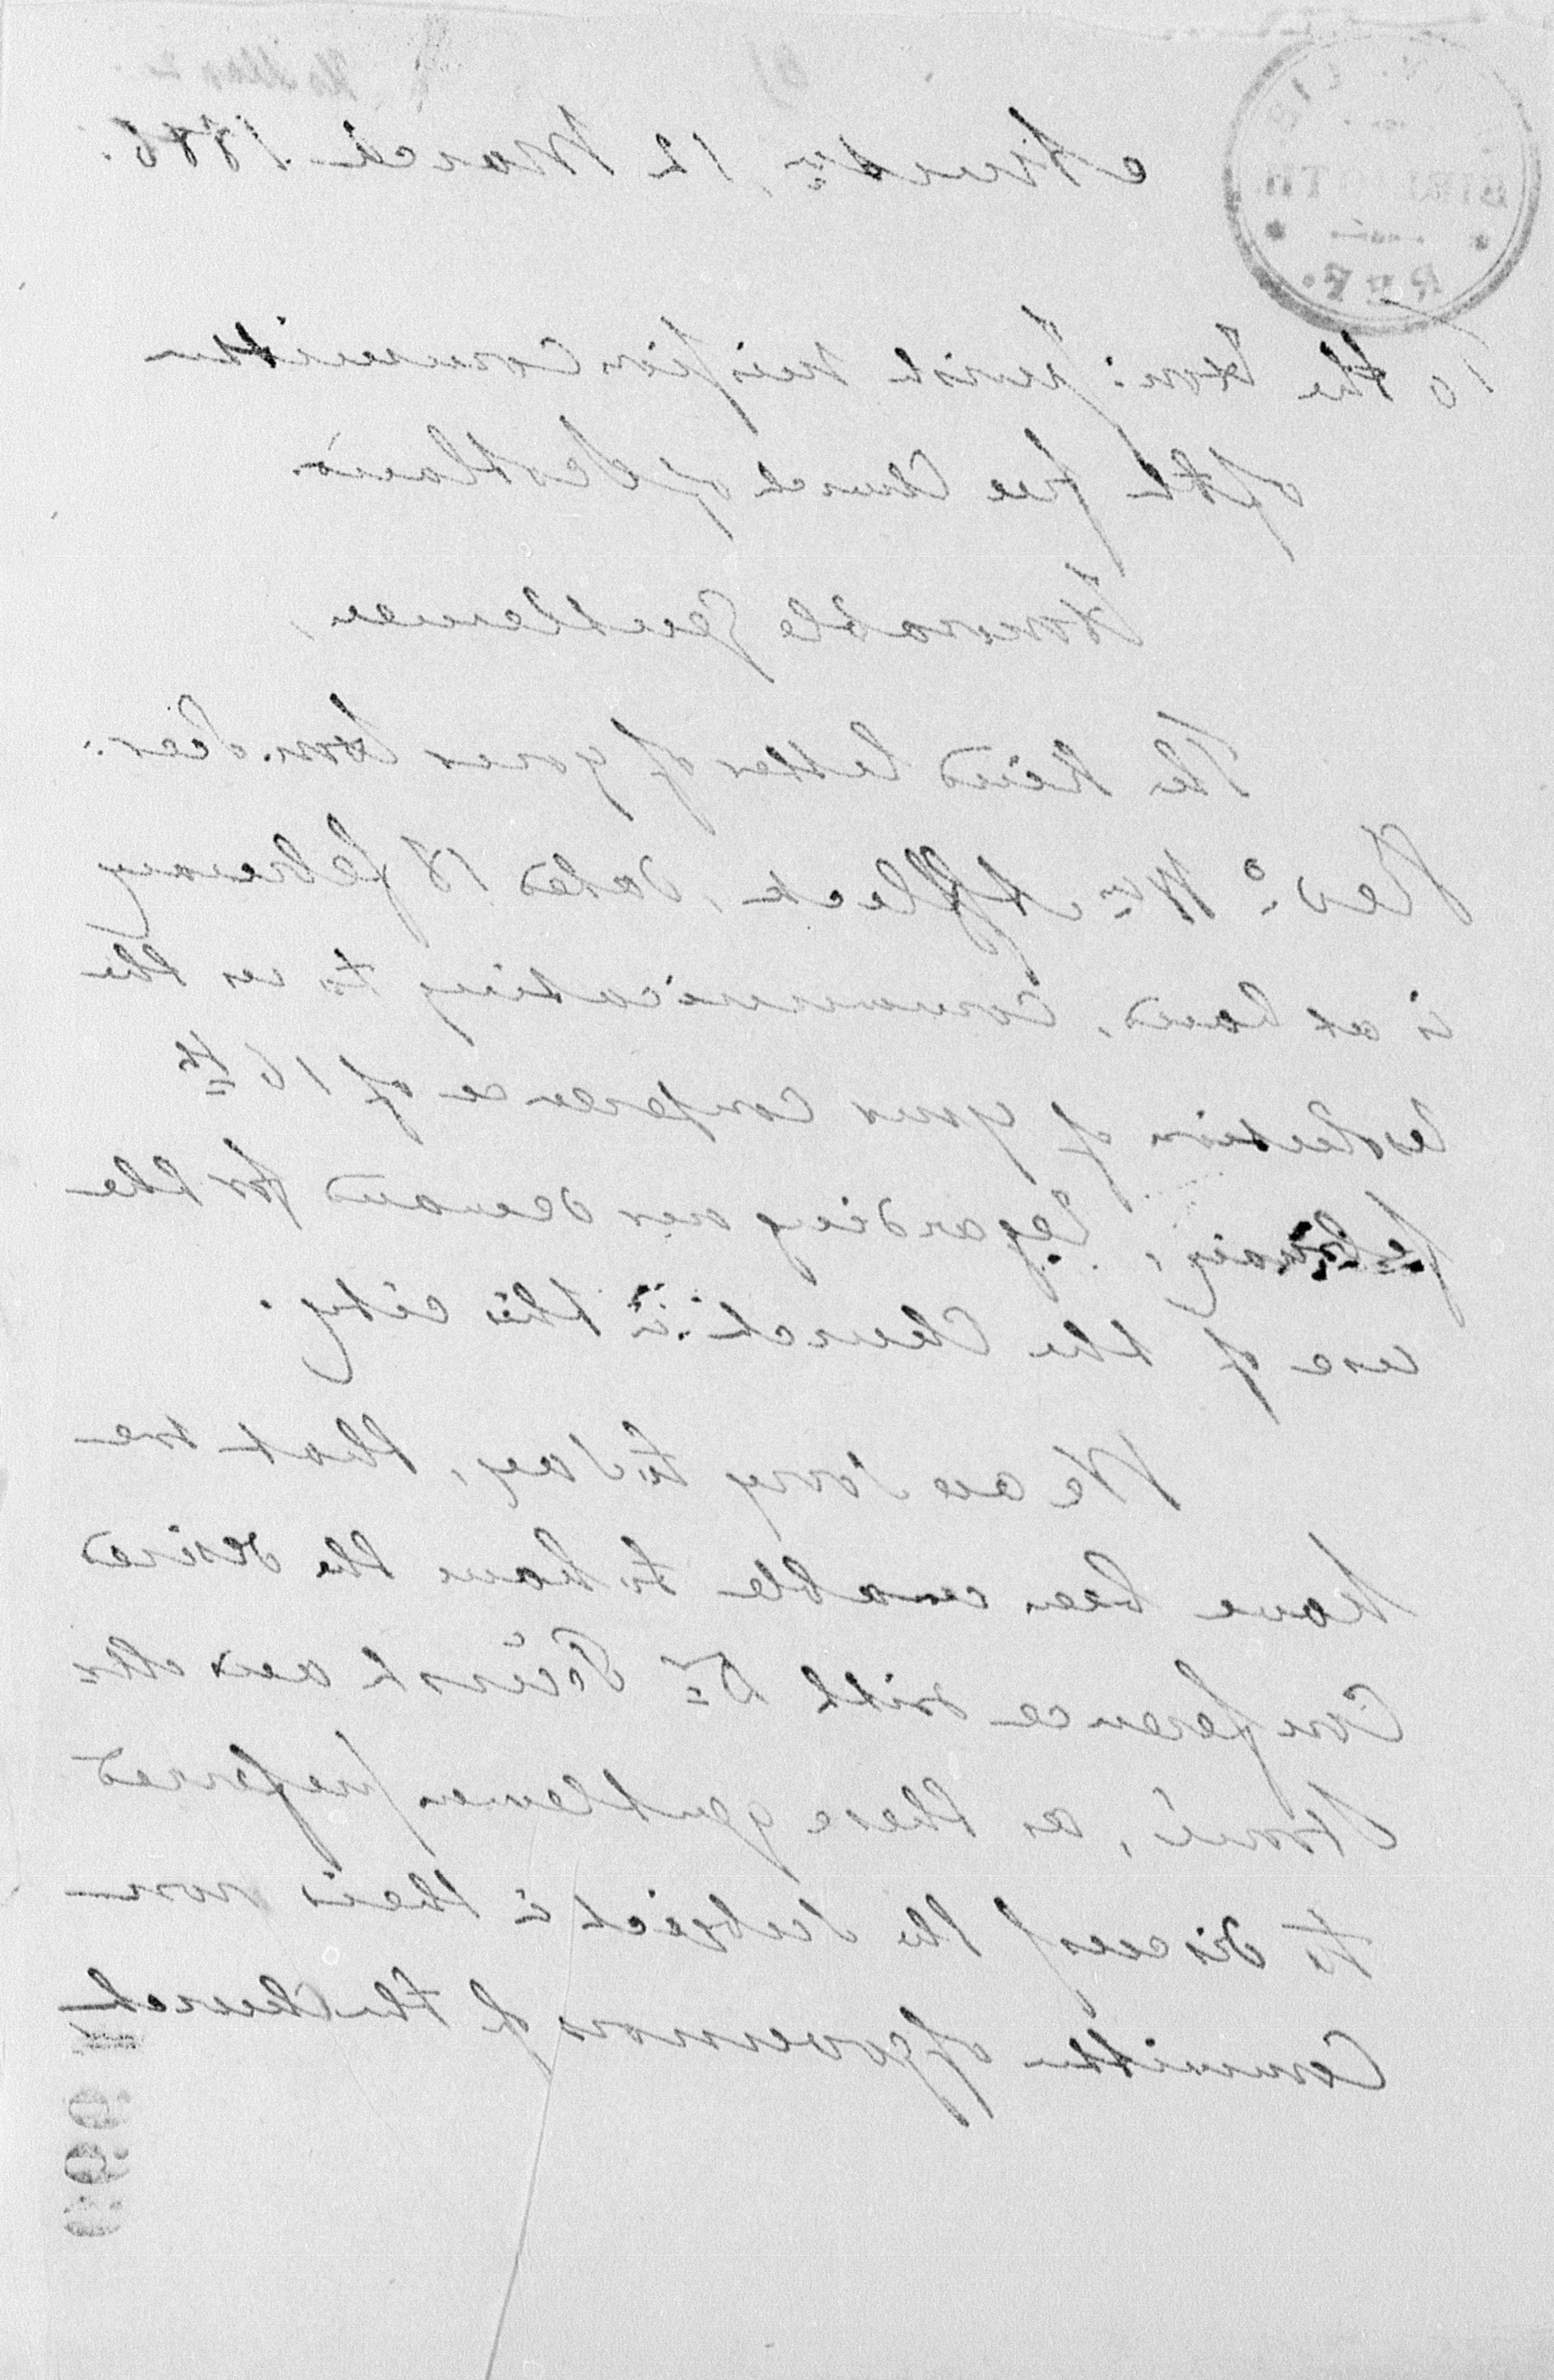 Amstm, 12 March 1886.
To the Hon: Jewish Mission Committee
of the free Church of Scotland.
Honorable Gentlemen,
The kind letter of your Hon. Secr:
Revd. Wm Affleck, dated 18 february
is at hand, communicating to us the
resolution of your conference of 16th
february, regarding our demand for the
use of the Church in this city.
We are sorry to say, that we
have been unable to have the desired
Conference with Dr and Mr
as these gentlemen preferred
to discuss the subject in their own
Committee of governors of the Church
BIBLIOTH.